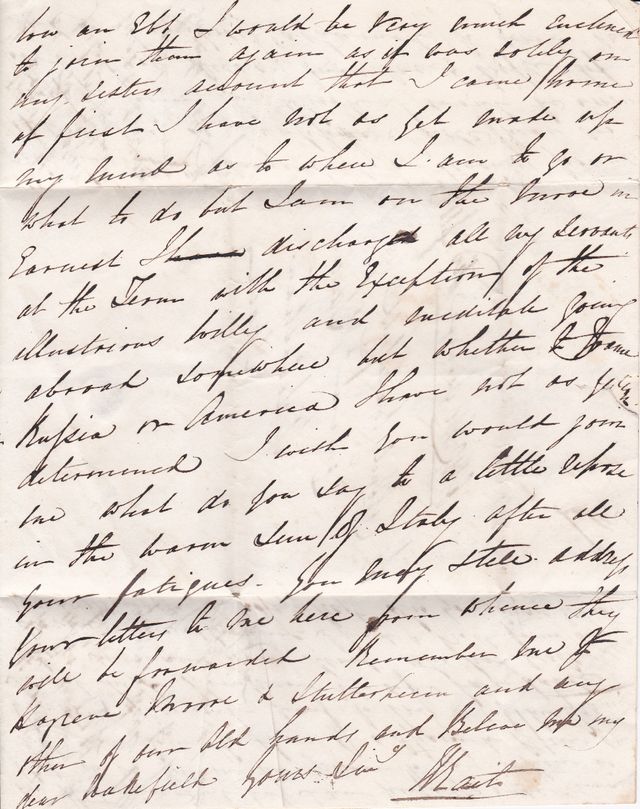 I would be very much inclined
to join them again as it was solely on
my sisters account that I came home
at first I have not as yet made up
my mind as to where I am to go or
what to do but I am on the move in
Earnest discharged all my Servants
at the Term with the Exception of the
illustrious Willy and meditate going
abroad somewhere but whether to France
Russia or America I have not as yet
determined I wish you would join
me what do you say to a little repose
in the warm Sun of Italy after all
your fatigues. You may still address
your letters to me here from whence they
will be forwarded Remember me to
Moore & Stutterheim and any
other of our old friends and Believe me my
dear Wakefield yours Sin^y